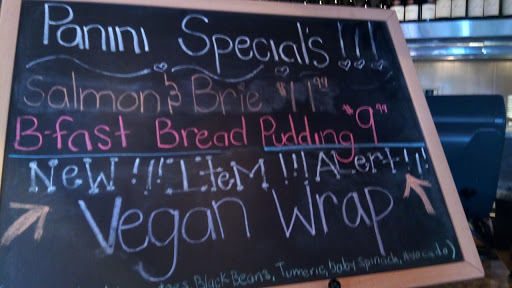 Panini Special's!!!
Salmon & Brie $11.99
B-fast Bread Pudding $9.99
New!!! Item!!! Alert!!!
Vegan Wrap
Black Beans, Tumeric, baby spinach, Avocado)